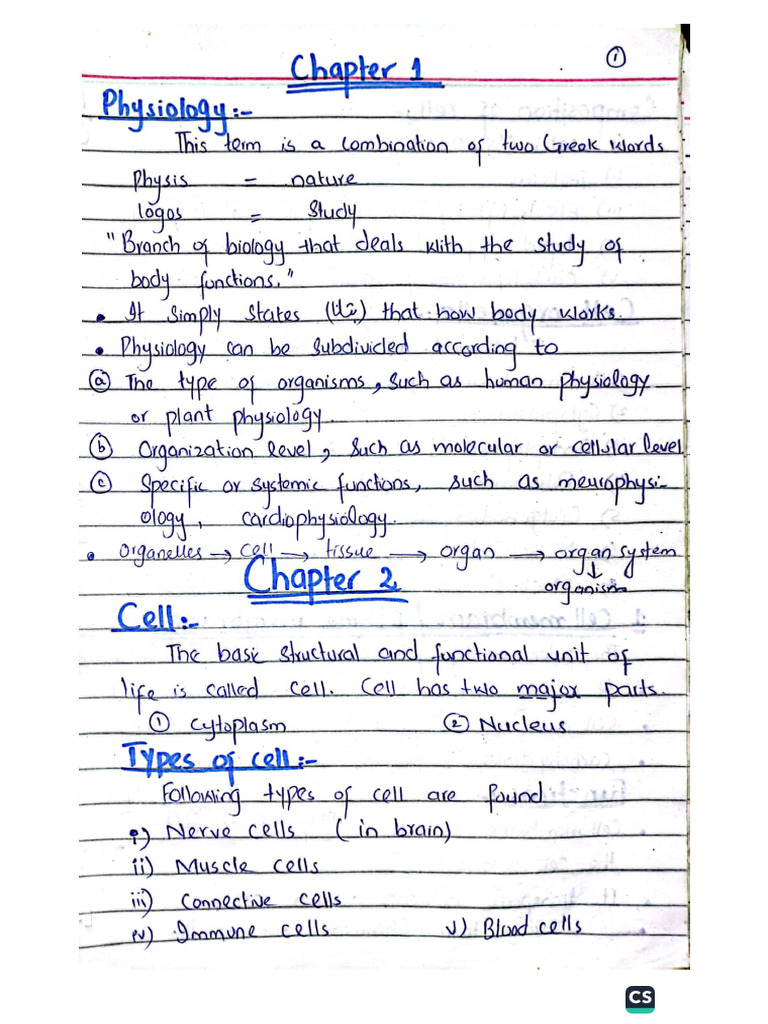 ①
Chapter 1
Physiology:-
This term is a combination of two Greek words
Physis = nature
logos = Study
"Branch of biology that deals with the study of
body functions."
• It simply states (بتانا) that how body works.
• Physiology can be subdivided according to
ⓐ The type of organisms, such as human physiology
or plant physiology.
ⓑ Organization level, such as molecular or cellular level
ⓒ Specific or systemic functions, such as neurophysi-
ology, cardiophysiology.
• Organelles → cell → tissue → organ → organ system
↓
organism
Chapter 2
Cell:-
The basic structural and functional unit of
life is called cell. Cell has two major parts.
① Cytoplasm ② Nucleus
Types of cell:-
Following types of cell are found
i) Nerve cells (in brain)
ii) Muscle cells
iii) Connective cells
iv) Immune cells v) Blood cells
CS